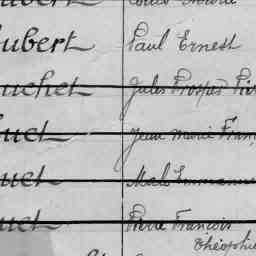 ubert Paul Ernest
uchet Jules Prosper
uet Jean Marie Franç
uet Malo Emmanue
uet Pierre François
Théophi